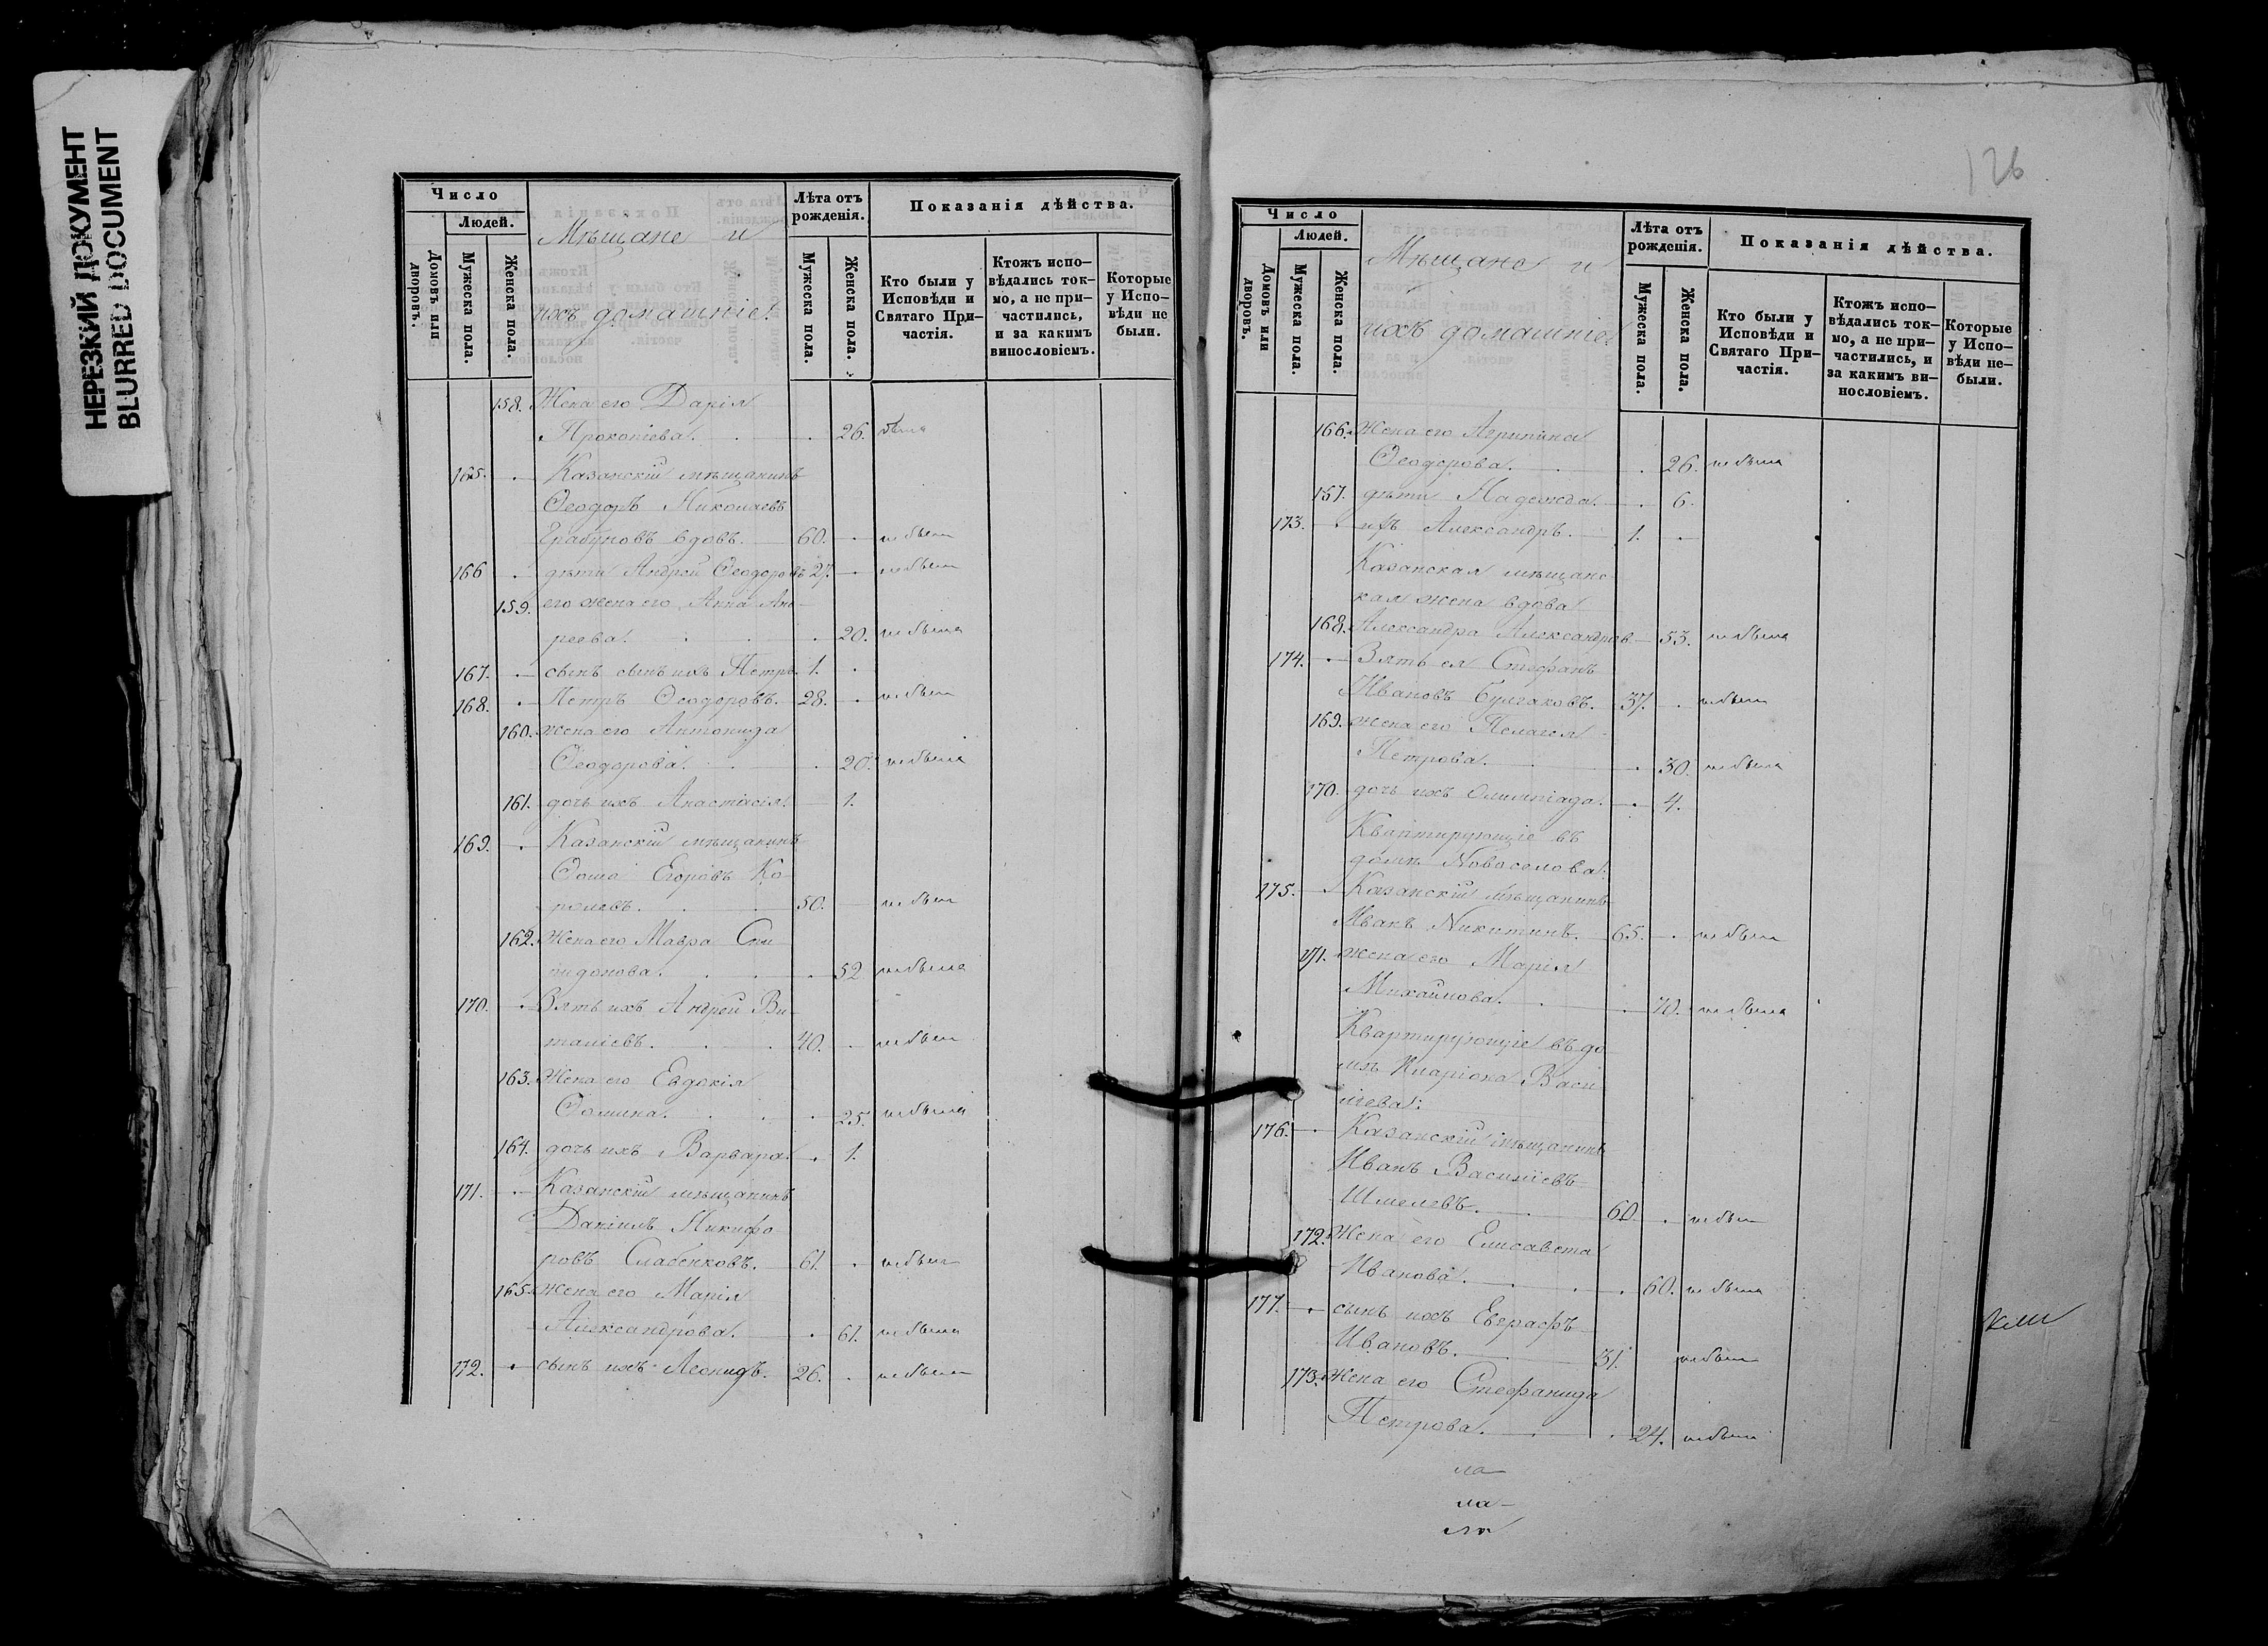 НЕРЕЗКИЙ ДОКУМЕНТ
BLURRED DOCUMENT
Число
Людей.
Домовъ или дворовъ.
Мужеска пола.
Женска пола.
Мѣщане и
ихъ домашніе:
Лѣта отъ рожденія.
Мужеска пола.
Женска пола.
Показанія дѣйства.
Кто были у Исповѣди и Святаго Причастія.
Ктожъ исповѣдались токмо, а не причастились, и за какимъ винословіемъ.
Которые у Исповѣди не были.
158. Жена его Дарія
Прокопіева. 26. была
165. Казанскій мѣщанинъ
Ѳеодоръ Николаевъ
вдовъ. 60. не былъ
166 дѣти Андрей Ѳеодоровъ 27. не былъ
159. его жена его Анна Анд-
реева. 20. не была
167. сынъ сынъ ихъ Петръ 1.
168. Петръ Ѳеодоровъ. 28. не былъ
160. жена его Антонида
Ѳеодорова. 20. не была
161. дочь ихъ Анастасія. 1.
169. Казанскій мѣщанинъ
Ѳома Егоровъ Ко-
ролевъ. 50. не былъ
162. Жена его Мавра Спи-
ридонова. 52 не была
170. Зять ихъ Андрей Ви-
таліевъ. 40. не былъ
163. Жена его Евдокія
Ѳомина. 25. не была
164. дочь ихъ Варвара. 1.
171. Казанскій мѣщанинъ
Даніилъ Никифо-
ровъ Слабенковъ. 61. не былъ
165. Жена его Марія
Александрова. 61. не была
172. сынъ ихъ Леонидъ. 26. не былъ
126
Число
Людей.
Домовъ или дворовъ.
Мужеска пола.
Женска пола.
Мѣщане и
ихъ домашніе:
Лѣта отъ рожденія.
Мужеска пола.
Женска пола.
Показанія дѣйства.
Кто были у Исповѣди и Святаго Причастія.
Ктожъ исповѣдались токмо, а не причастились, и за какимъ винословіемъ.
Которые у Исповѣди небыли.
166. Жена его Агрипина
Ѳеодорова. 26. не была
157. дѣти Надежда. 6.
173. ихъ Александръ. 1.
Казанская мѣщанс-
кая жена вдова
168. Александра Александров 53. не была
174. Зять ея Стефанъ
Ивановъ Булгаковъ. 37. не былъ
169. жена его Пелагея
Петрова. 30. не была
170. дочь ихъ Олимпіада. 4.
Квартирующіе въ
домѣ Новоселова:
175. Казанскій мѣщанинъ
Иванъ Никитинъ. 65. не былъ
171. жена его Марія
Михайлова. 70. не была
Квартирующіе въ до-
мѣ Иларіона Васи-
льева:
176. Казанскій мѣщанинъ
Иванъ Василіевъ
Шмелевъ. 60 не былъ
172. Жена его Елисавета
Иванова. 60. не была
177. сынъ ихъ Евграфъ
Ивановъ. 31. не былъ
173. Жена его Стефанида
Петрова. 24. не была
ла
ла-
ла